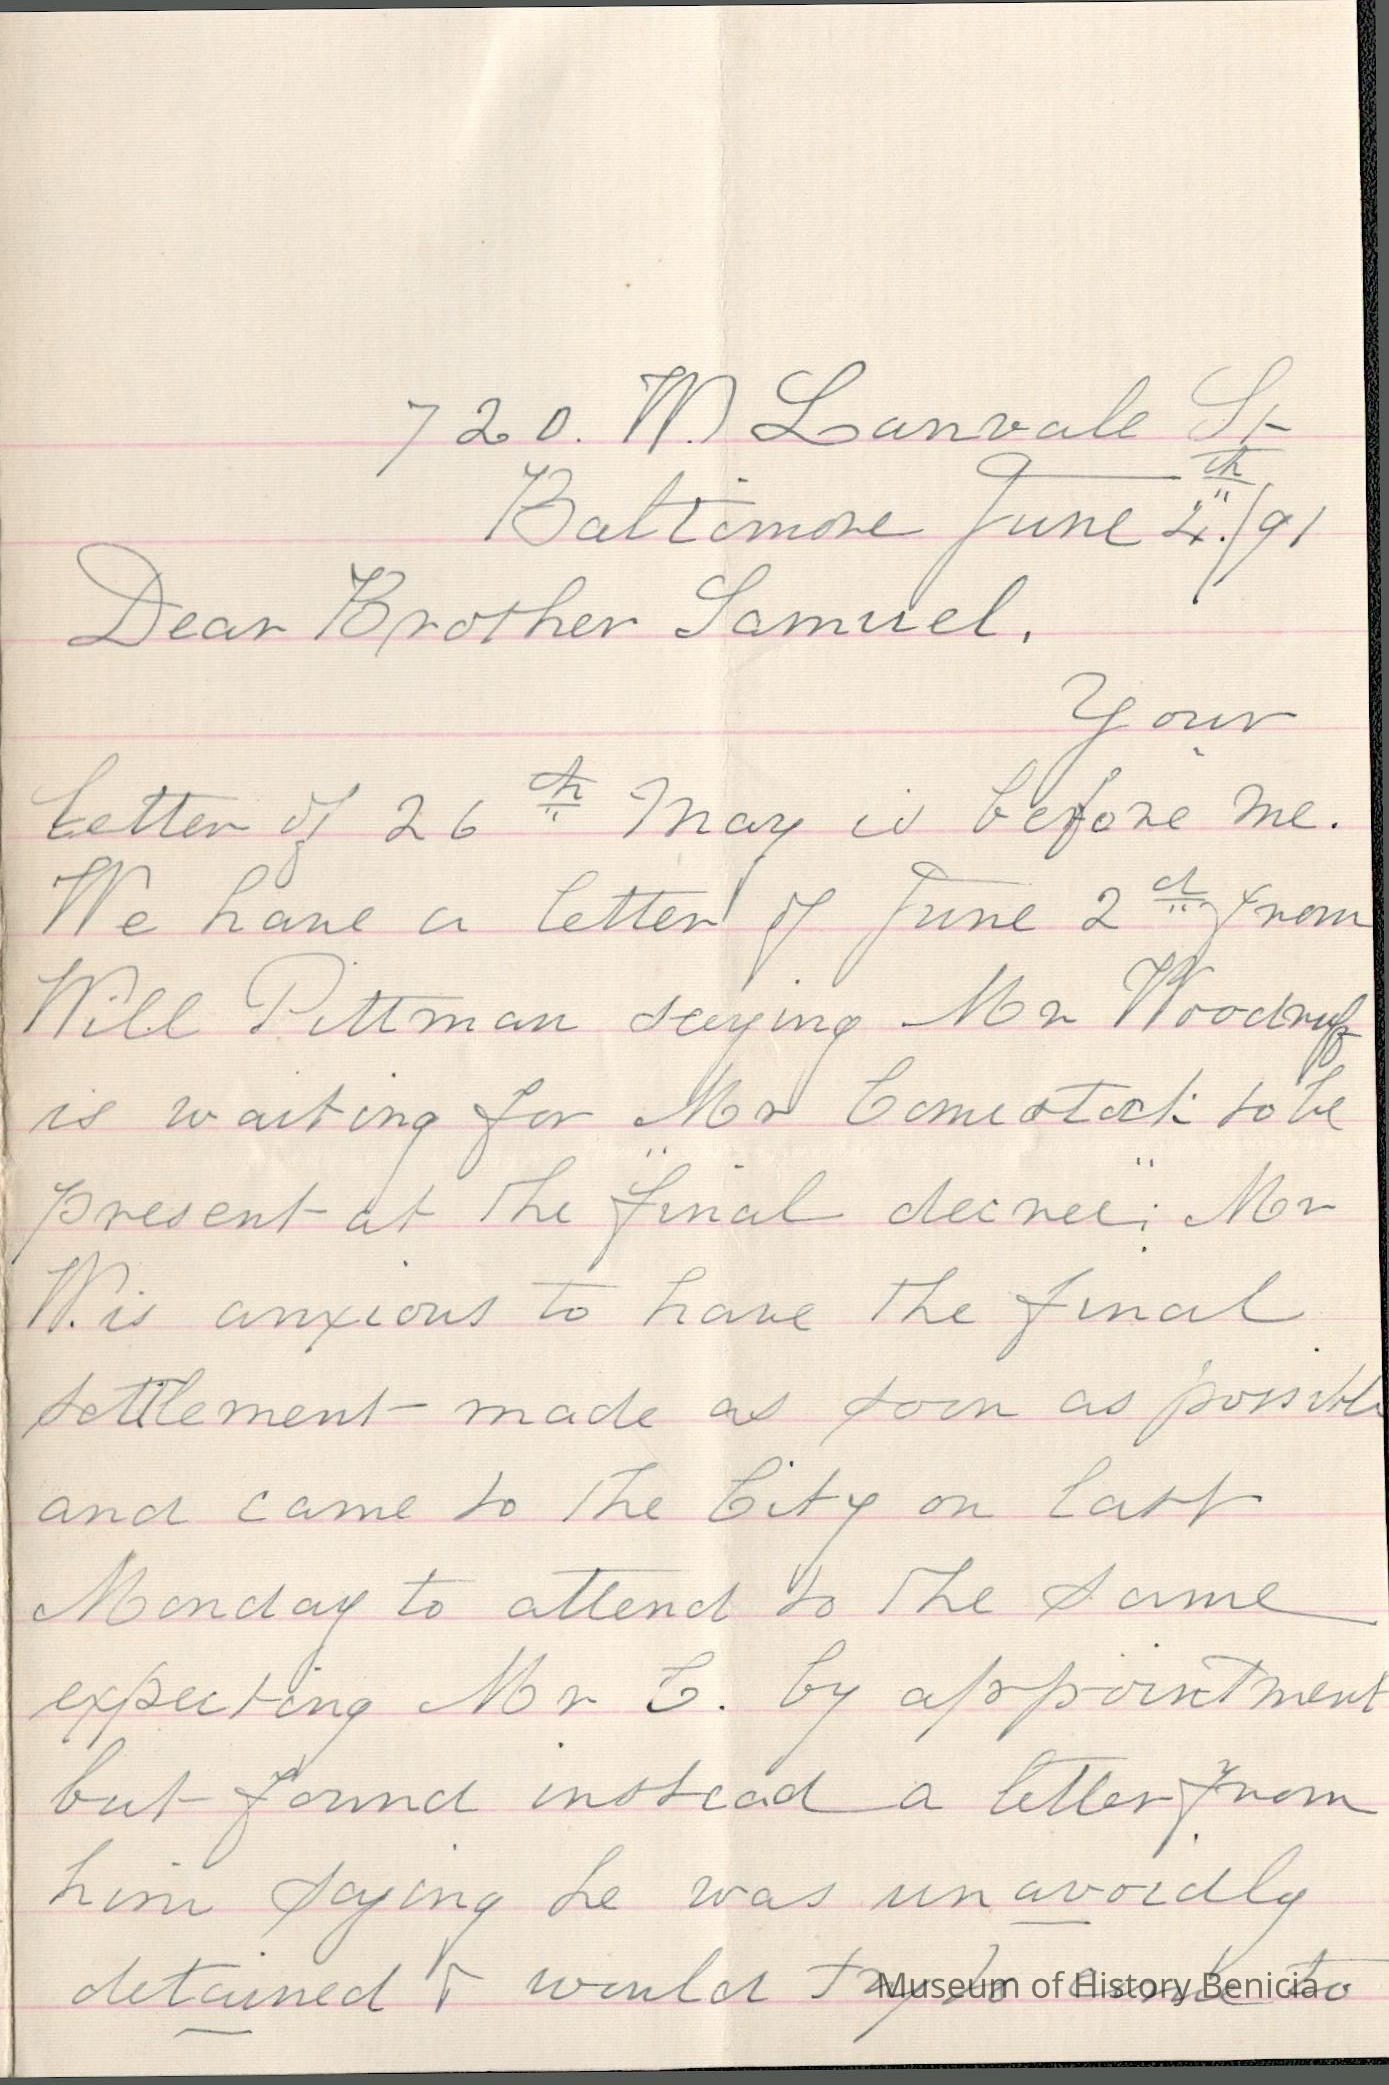 720. W. Lanvale St
Baltimore June 4th/91
Dear Brother Samuel.
Your
letter of 26th May is before me.
We have a letter of June 2d from
Will Pittman saying Mr Woodruff
is waiting for Mr Comestock to be
present at the "final decree"; Mr
W. is anxious to have the final
settlement made as soon as possible
and came to the City on last
Monday to attend to the same
expecting Mr C. by appointment
but found instead a letter from
him saying he was unavoidly
detained & would try to come to
Museum of History Benicia